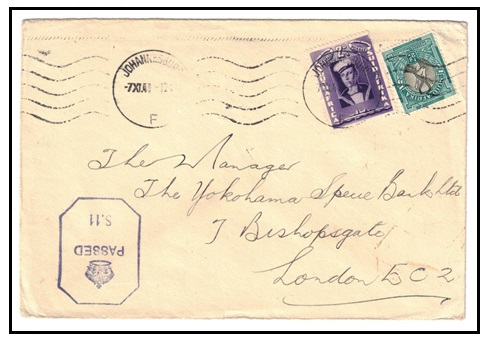 JOHANNESBURG
F
SUID-AFRIKA
The Manager
The Yokohama Specie Bank Ltd
7 Bishopsgate
London EC2
PASSED
S.11